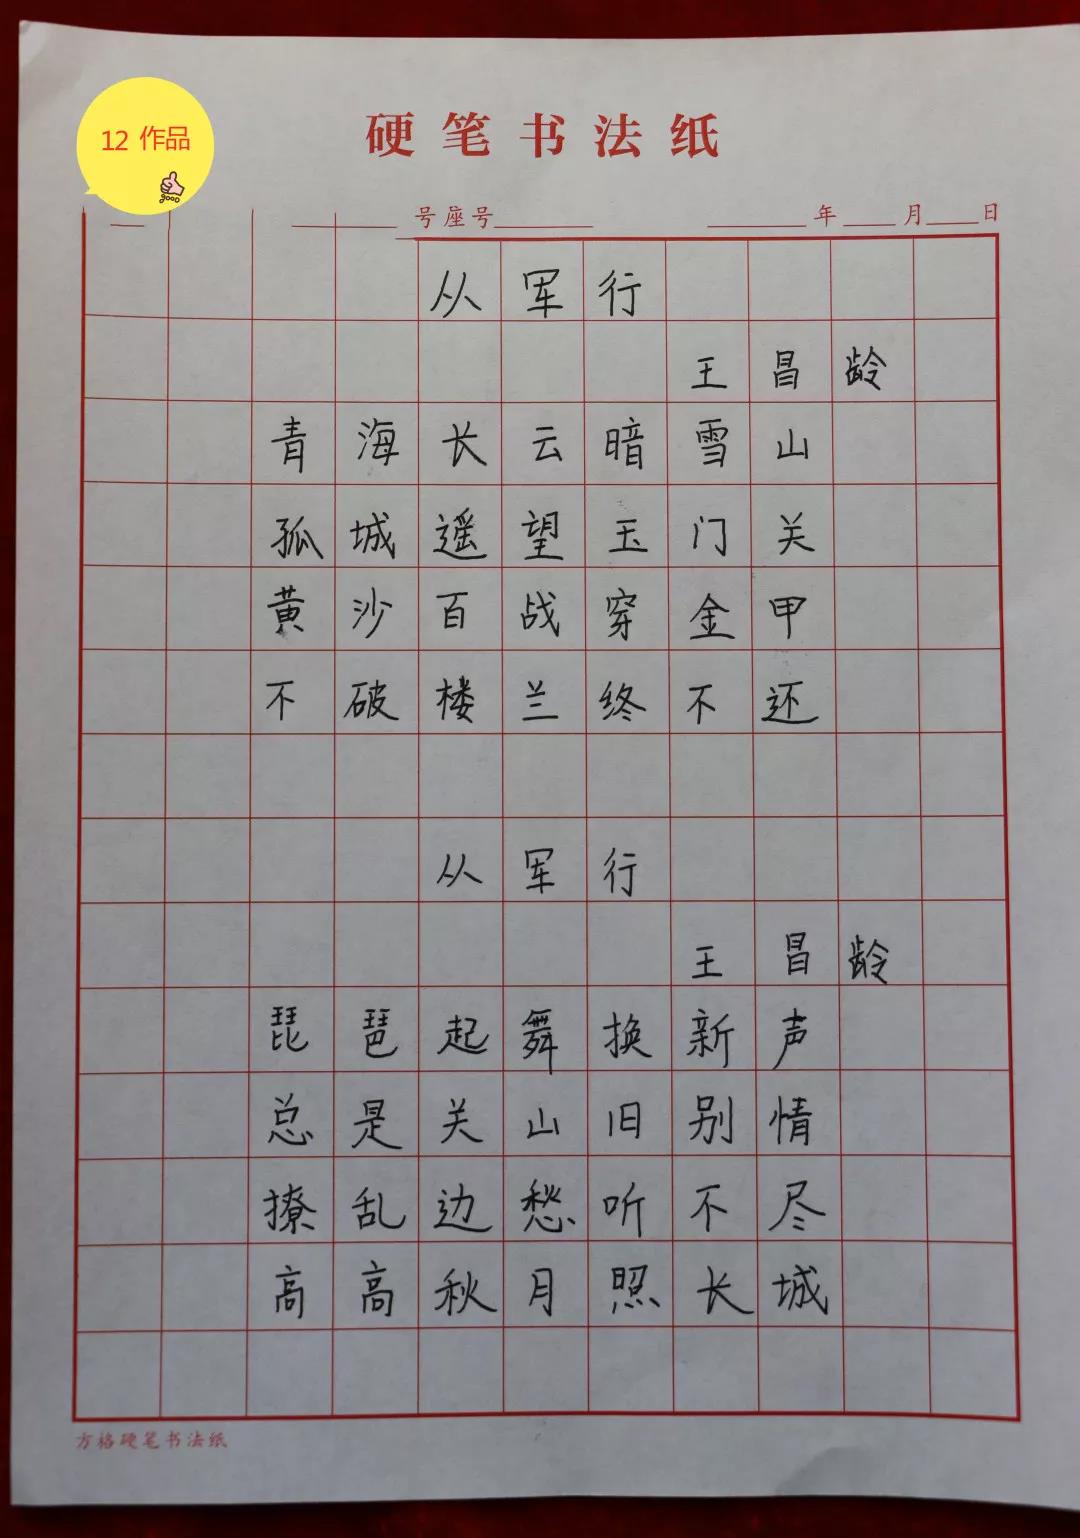 12 作品
硬笔书法纸
号座号 年 月 日
从军行
王昌龄
青海长云暗雪山
孤城遥望玉门关
黄沙百战穿金甲
不破楼兰终不还
从军行
王昌龄
琵琶起舞换新声
总是关山旧别情
撩乱边愁听不尽
高高秋月照长城
方格硬笔书法纸